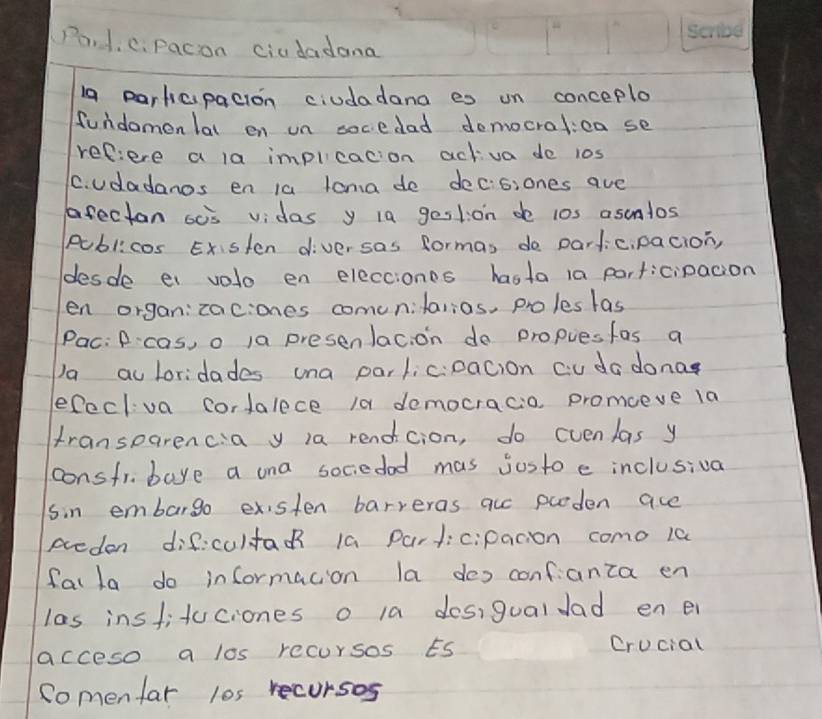 Scribe
Participacion ciudadana
la participación ciudadana es un concepto
fundamental en un sociedad democratica se
refiere a la implicacion activa de los
ciudadanos en la toma de decisiones que
afectan sus vidas y la gestión de los asuntos
Publicos Existen diversas formas de participacion,
desde el voto en elecciones hasta la participacion
en organizaciones comunitarias, protestas
Pacificas, o la presentación de propuestas a
la autoridades una participacion ciudadonas
efectiva fortalece la democracia promueve la
transparencia y la rendicion, do cuentas y
constribuye a una sociedad mas justo e inclusiva
sin embargo existen barreras que pueden que
pueden dificultar la Participacion como la
falta do informacion la desconfianza en
las instituciones o la desigualdad en el
acceso a los recursos Es crucial
fomentar los recursos